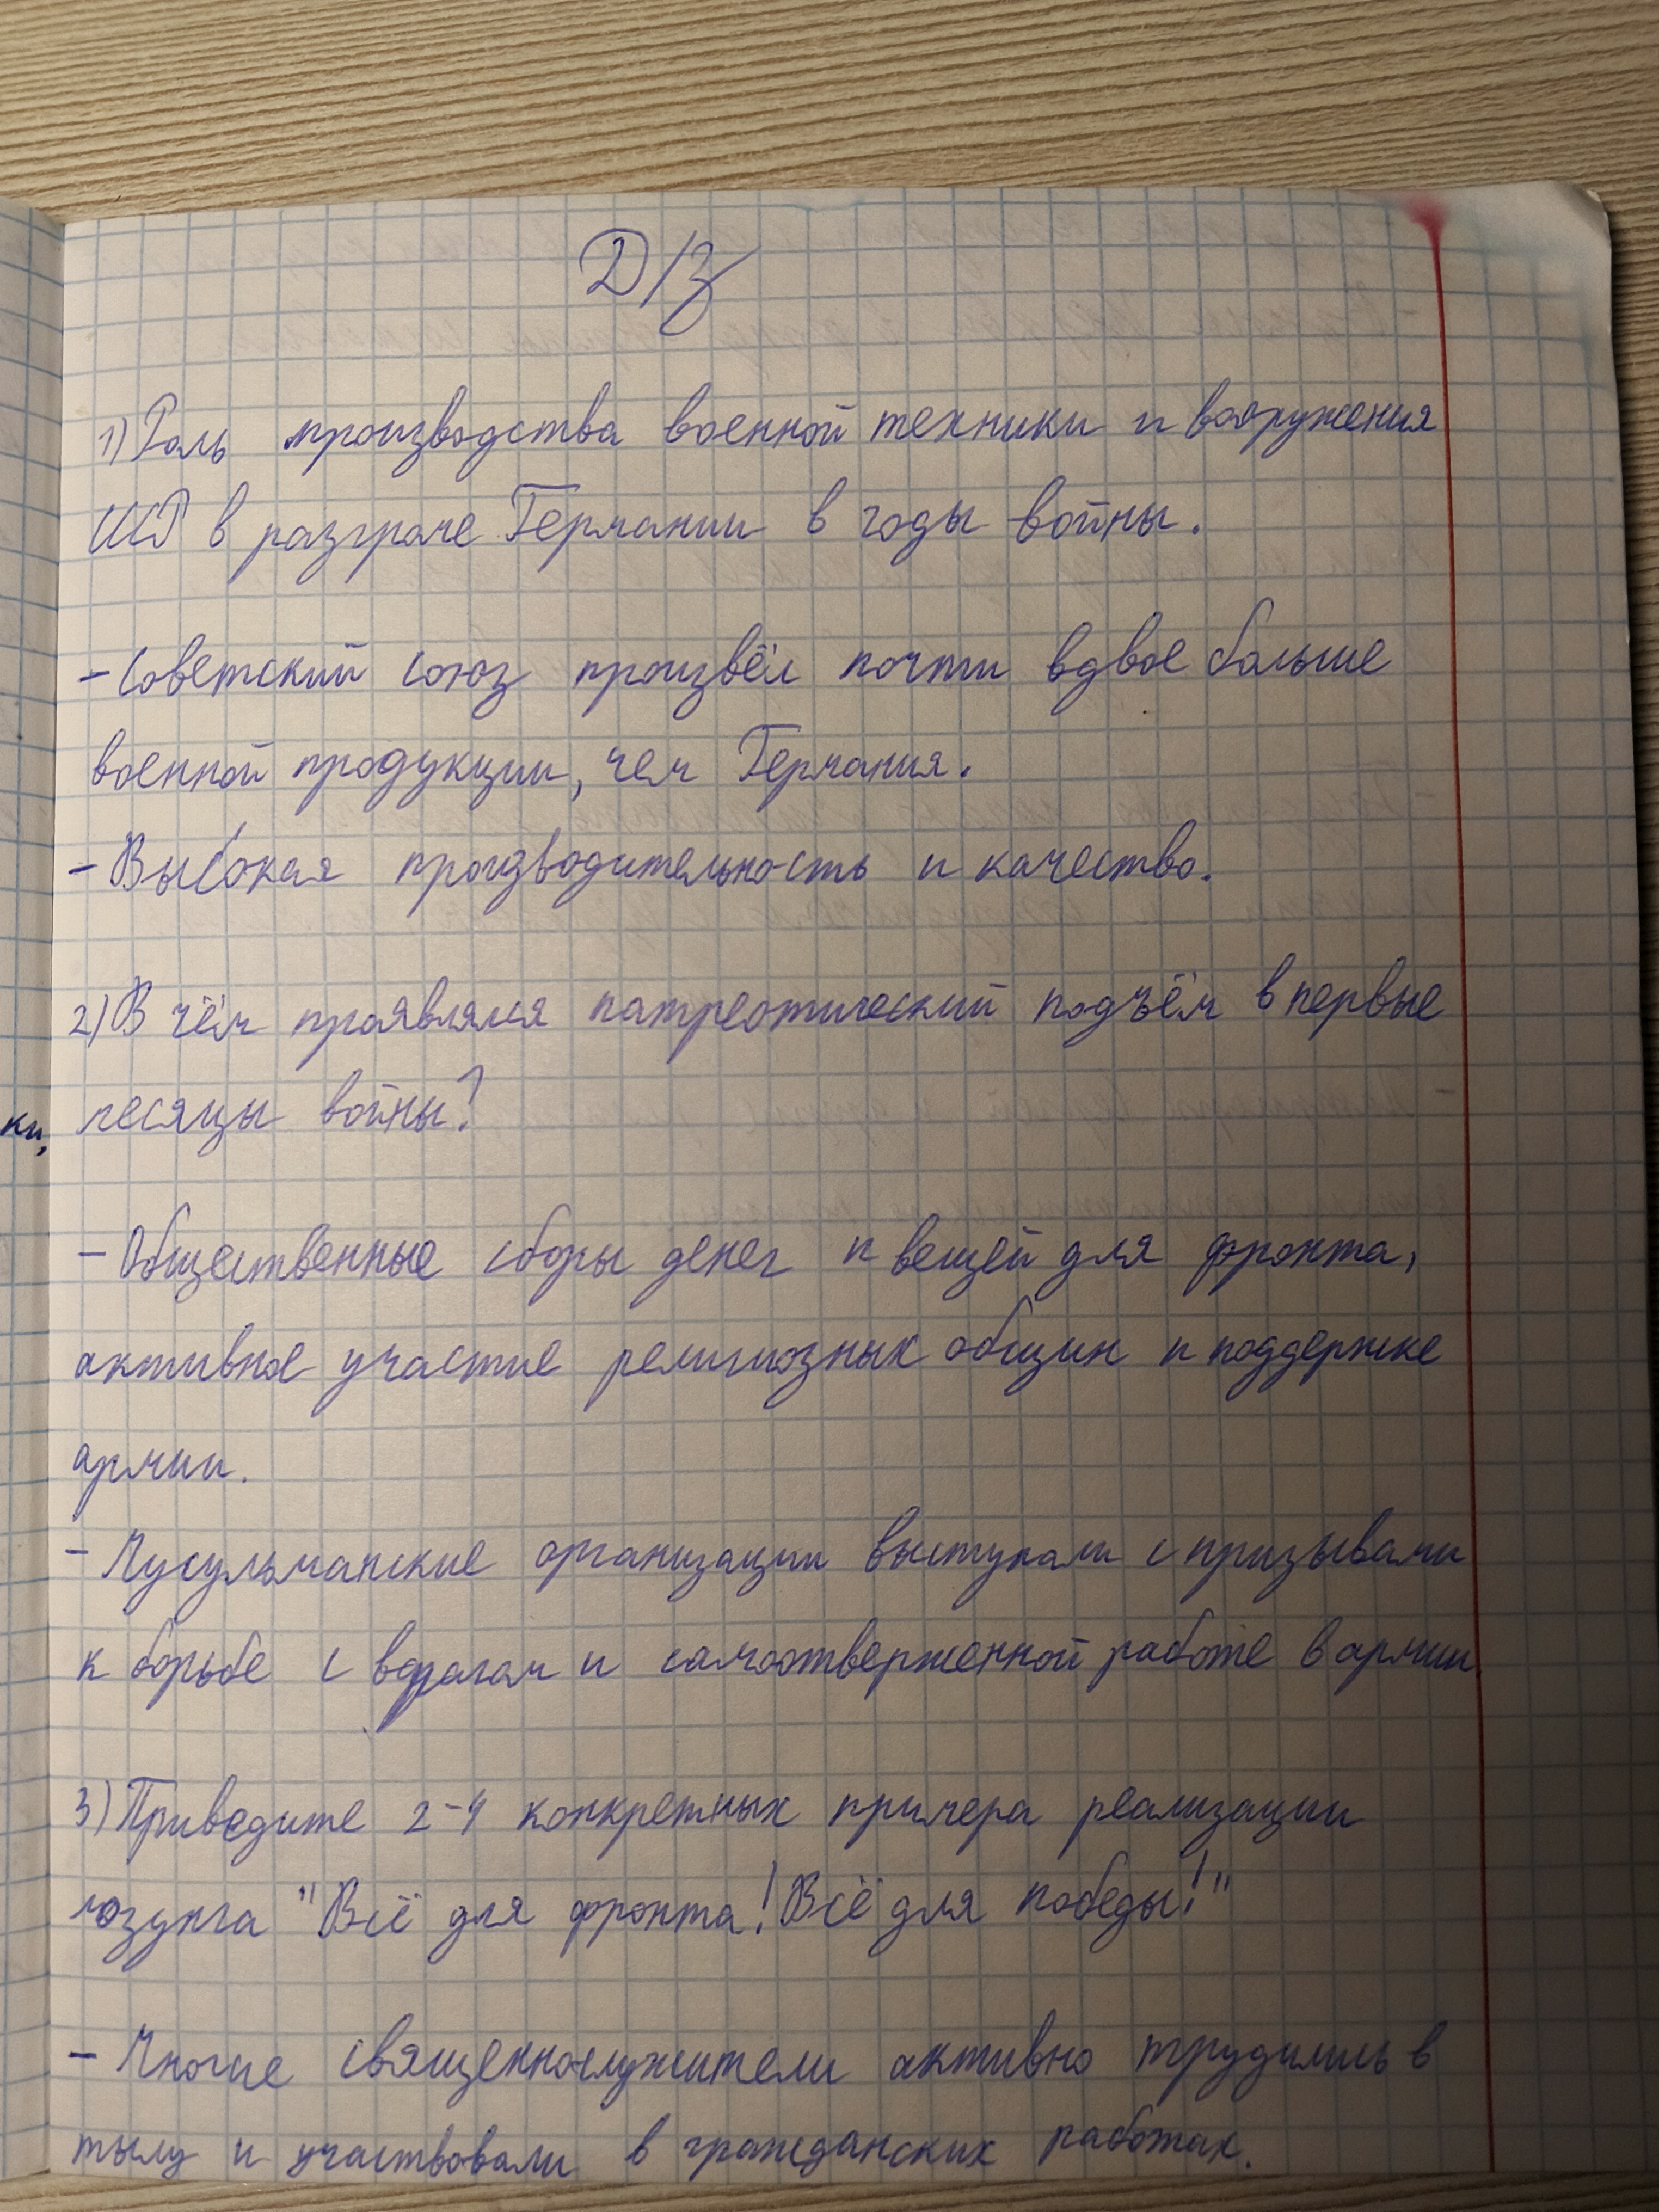 Д/з
1) Роль производства военной техники и вооружения
СССР в разгроме Германии в годы войны.
- Советский союз произвёл почти вдвое больше
военной продукции, чем Германия.
- Высокая производительность и качество.
2) В чём проявлялся патреотический подъём в первые
ки, месяцы войны?
- Общественные сборы денег и вещей для фронта,
активное участие религиозных общин и поддержке
армии.
- Мусульманские организации выступали с призывами
к борьбе с врагам и самоотверженной работе в армии
3) Приведите 2-4 конкретных примера реализации
лозунга "Всё для фронта! Всё для победы!"
- Многие священнослужители активно трудились в
тылу и участвовали в гражданских работах.